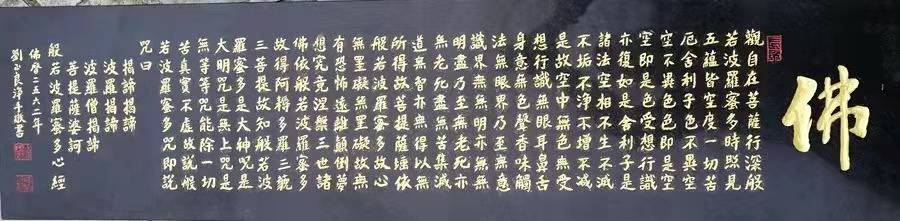 佛
觀自在菩薩行深般
若波羅蜜多時照見
五蘊皆空度一切苦
厄舍利子色不異空
空不異色色即是空
空即是色受想行識
亦復如是舍利子是
諸法空相不生不滅
不垢不淨不增不減
是故空中無色無受
想行識無眼耳鼻舌
身意無色聲香味觸
法無眼界乃至無意
識界無無明亦無無
明盡乃至無老死亦
無老死盡無苦集滅
道無智亦無得以無
所得故菩提薩埵依
般若波羅蜜多故心
無罣礙無罣礙故無
有恐怖遠離顛倒夢
想究竟涅槃三世諸
佛依般若波羅蜜多
故得阿耨多羅三藐
三菩提故知般若波
羅蜜多是大神咒是
大明咒是無上咒是
無等等咒能除一切
苦真實不虛故說般
若波羅蜜多咒即說
咒曰
揭諦揭諦
波羅揭諦
波羅僧揭諦
菩提薩婆訶
般若波羅蜜多心經
佛曆二五六二年
劉良淨手敬書